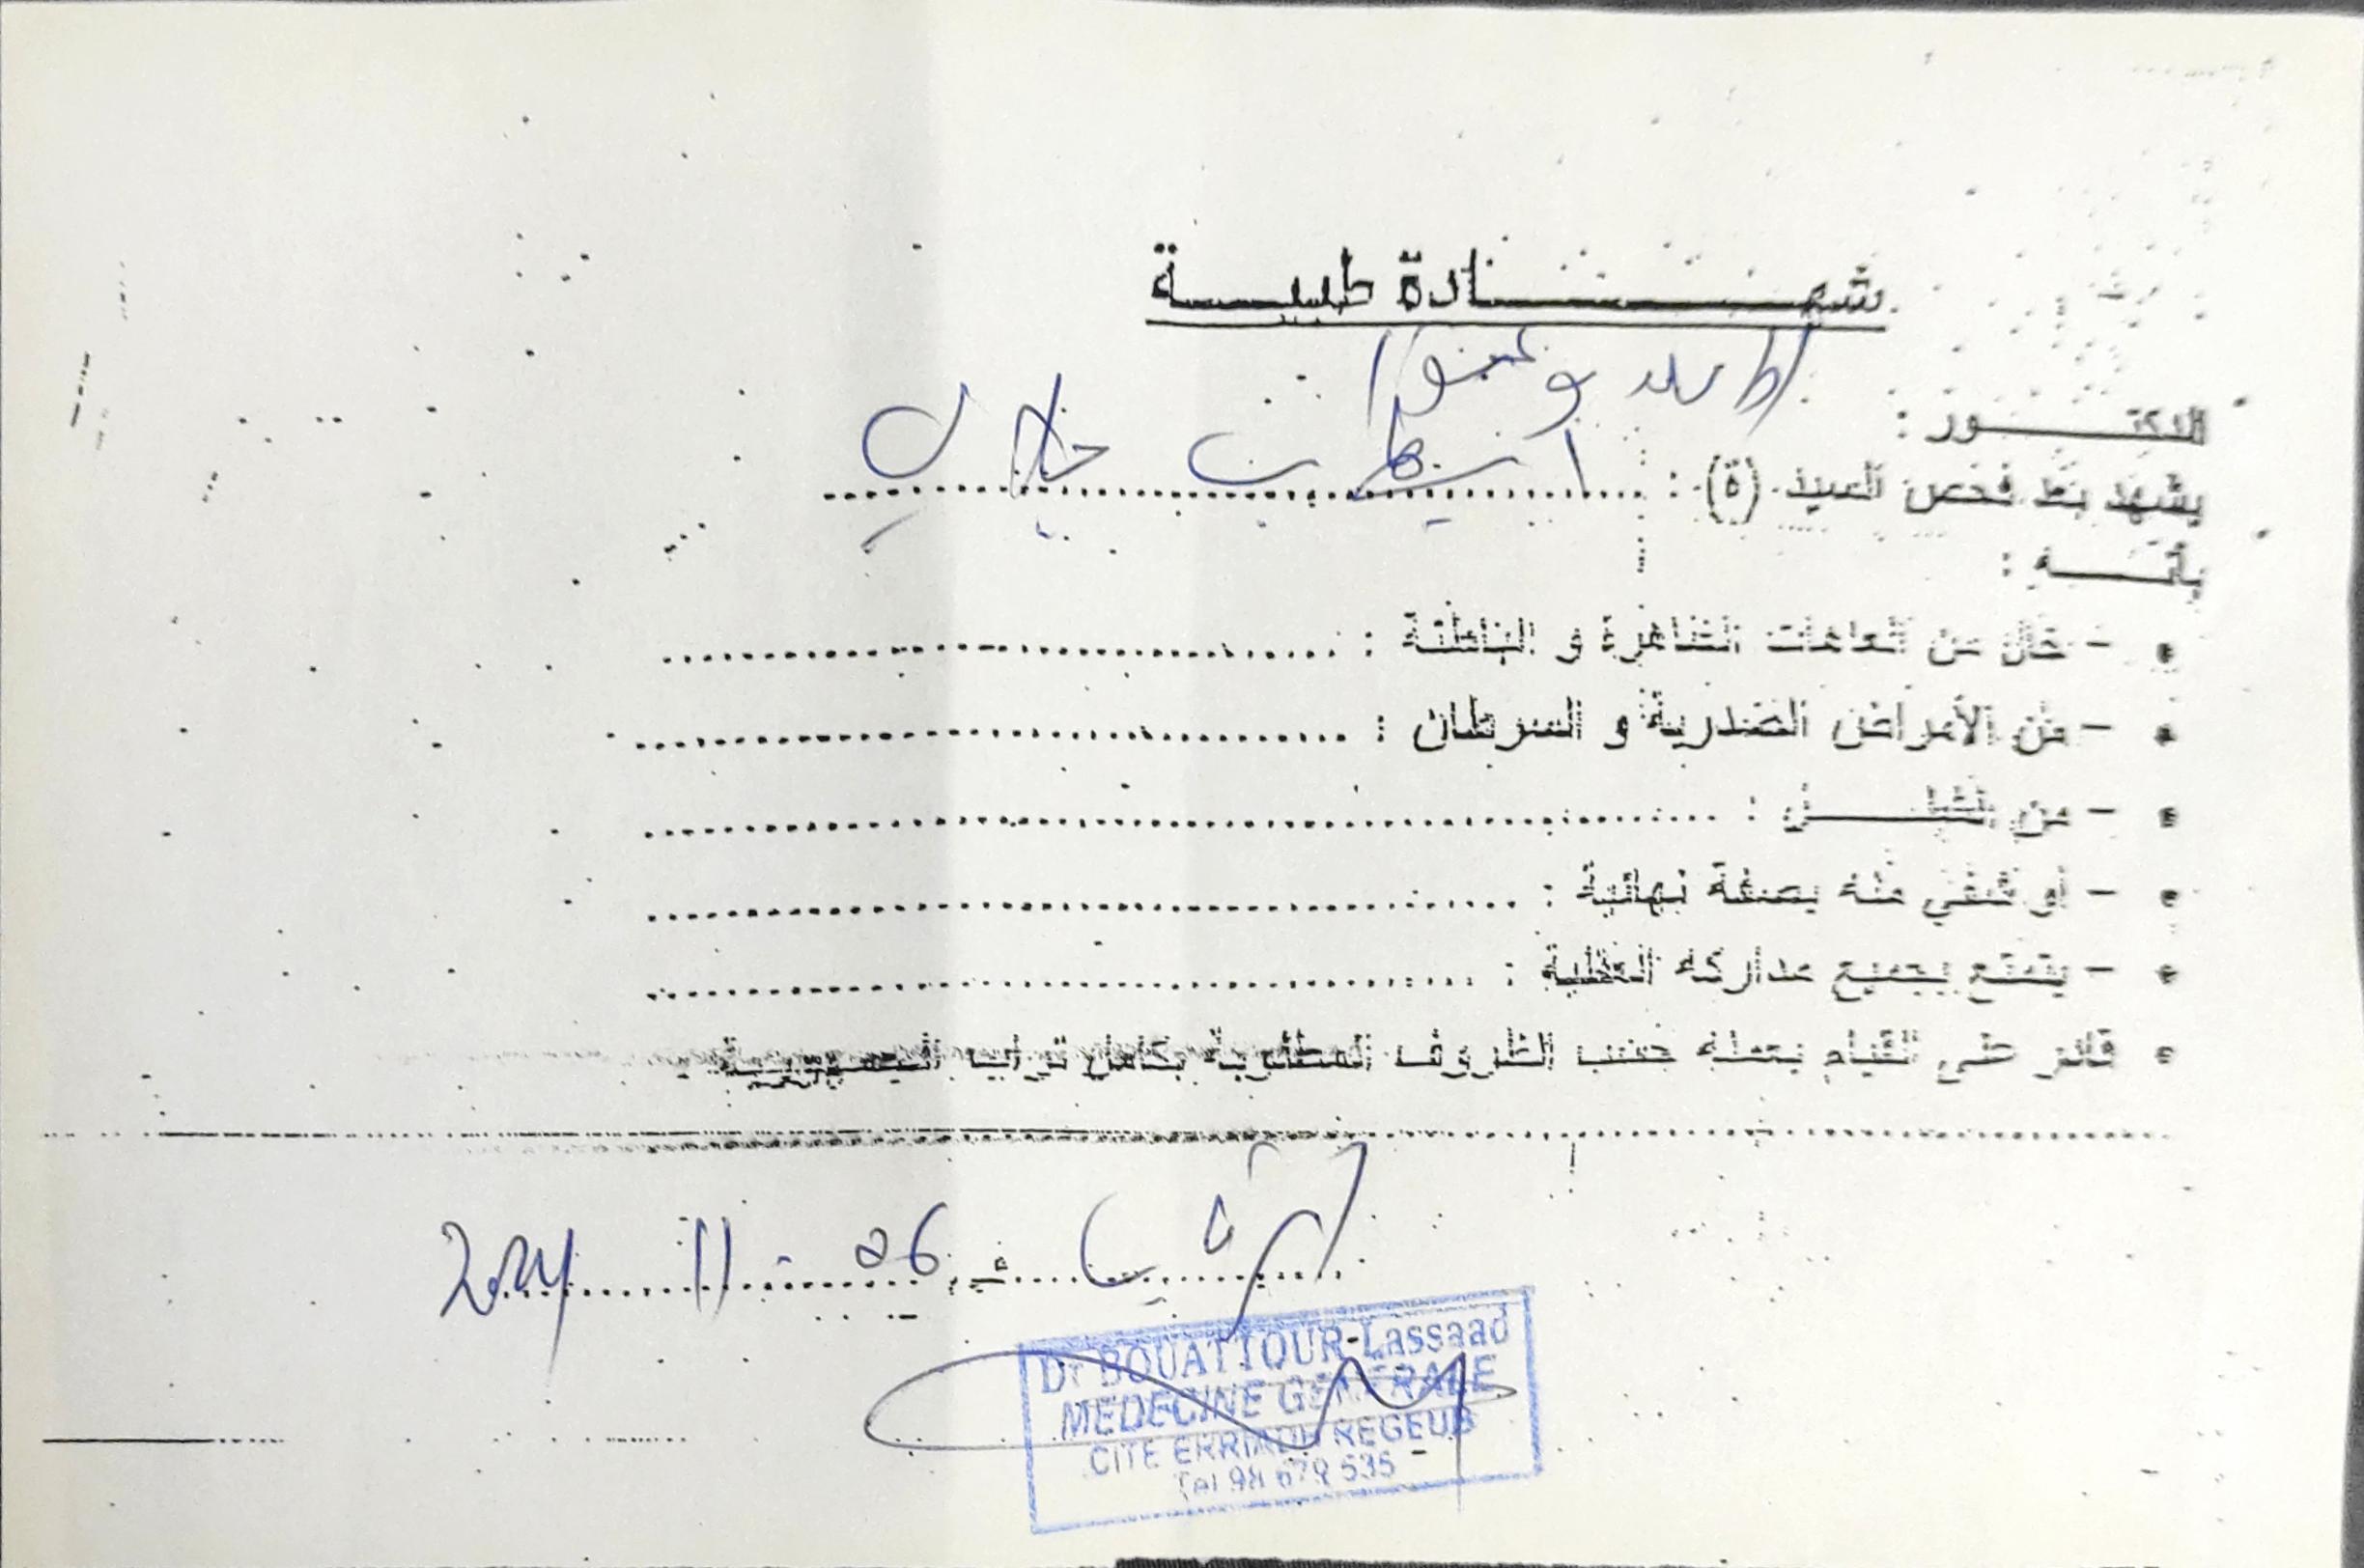 شهادة طبية
الأسعد بوعتور
الدكتور :
يشهد بعد فحص السيد (ة) :
بأنه :
• - خال من العاهات الظاهرة و الباطنة :
• - من الأمراض الصدرية و السرطان :
• - من الشلل :
• - أو شفي منه بصفة نهائية :
• - يتمتع بجميع مداركه العقلية :
• قادر على القيام بعمله حسب الظروف المطلوبة بكامل تراب الجمهورية .
الرقاب في 06 11 2024
Dr BOUATTOUR-Lassaad
MEDECINE GENERALE
CITE ERRIADH REGEUB
Tel 98 679 535